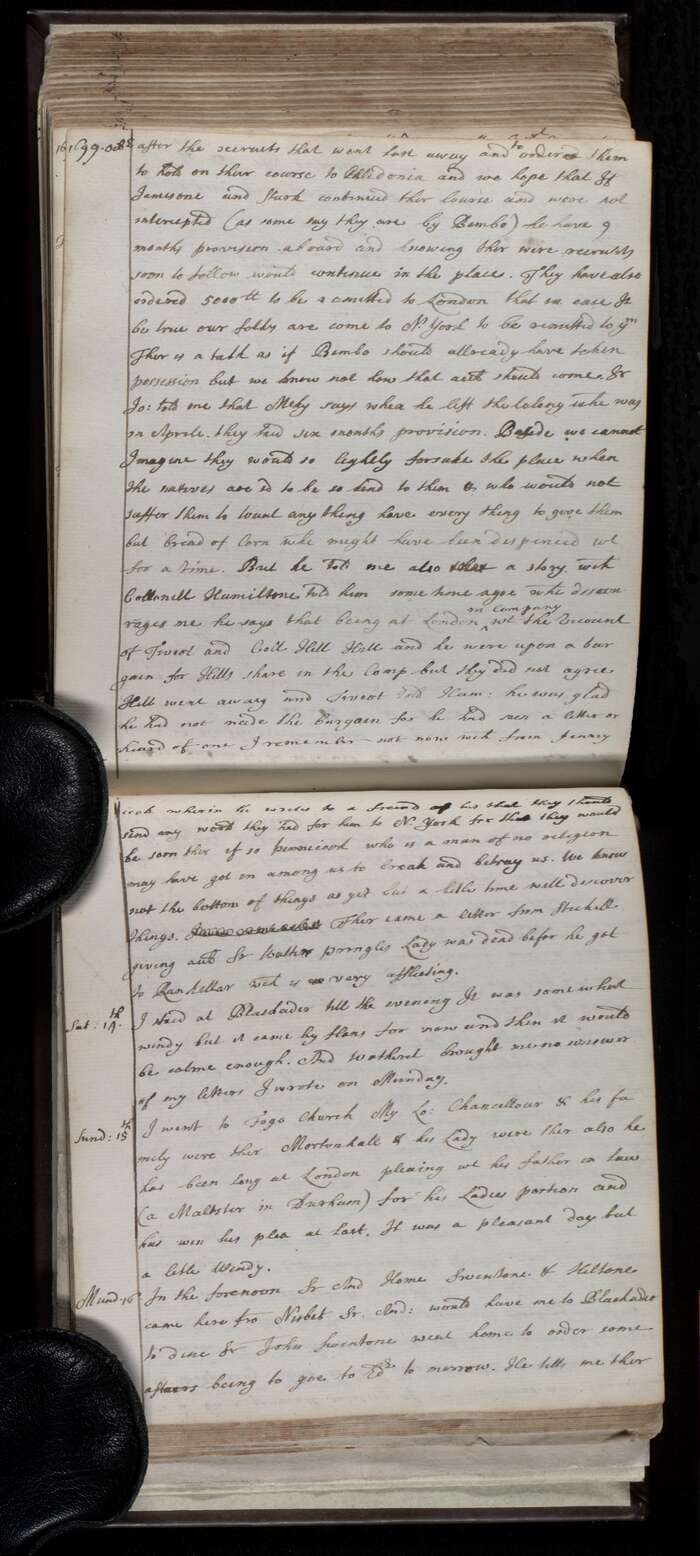 1699. Octr after the recruits that went last away and to ordered them
to hold on their course to Caledonia and we hope that If
Jamesone and Stark continued ther course and were not
intercepted (as some say they are by Bembo) he have 9
months provision aboard and knowing ther were recruits
soon to follow would continue in the place. They have also
ordered 5000 ll to be remitted to London that in case It
be true our folks are come to N. York to be remitted to ym
Ther is a talk as if Bembo should allready have taken
possession but we know not how that accott should come. Sr
Jo: told me that Meky says when he left the Colony whc was
in Aprile. they had six months provision. Beside we cannot
Imagine they would so lightly forsake the place when
the natives are sd to be so kind to them & who would not
suffer them to want any thing have every thing to give them
but bread of Corn whc might have been despenced wt
for a time. But he told me also a story wch
Collonell Hamiltone told him some time agoe whc discou
rages me he says that being at London in Company wt the Viccount
of Tiveot and Coll Hill Hill and he were upon a bar
gain for Hills share in the Comp but they did not agree
Hill went away and Tiveot told Ham: he was glad
he had not made the bargain for he had seen a letter or
heard of one I remember not now wch from Penny
cook wherin he writes to a freind of his that they should
send any word they had for him to N. York for that they would
be soon ther if so Pennicook who is a man of no religion
may have got in among us to break and betray us. We know
not the bottom of things as yet but a litle time will discover
things. Ther came a letter from Stichell
giving accott Sr Walter Pringles Lady was dead befor he got
to Rankellar wch is very afflicting.
Sat: 14th. I staid at Blackader till the evening It was some what
windy but it came by flans for now and then it would
be calme enough. And Wathret brought me no answer
of my letters I wrote on Munday.
Sund: 15th I went to Fogo Church My Lo: Chancellour & his fa
mily were ther Mortonhall & his Lady were ther also he
has been long at London pleaing wt his father in law
(a Maltster in Durham) for his Ladies portion and
has win his plea at last. It was a pleasant day but
a litle Windy.
Mund. 16 In the forenoon Sr And Home Swintone & Hiltone
came here fro Nisbet Sr. And: would have me to Blackader
to dine Sr John Swintone went home to order some
affairs being to goe to Edr to morrow. He tells me ther